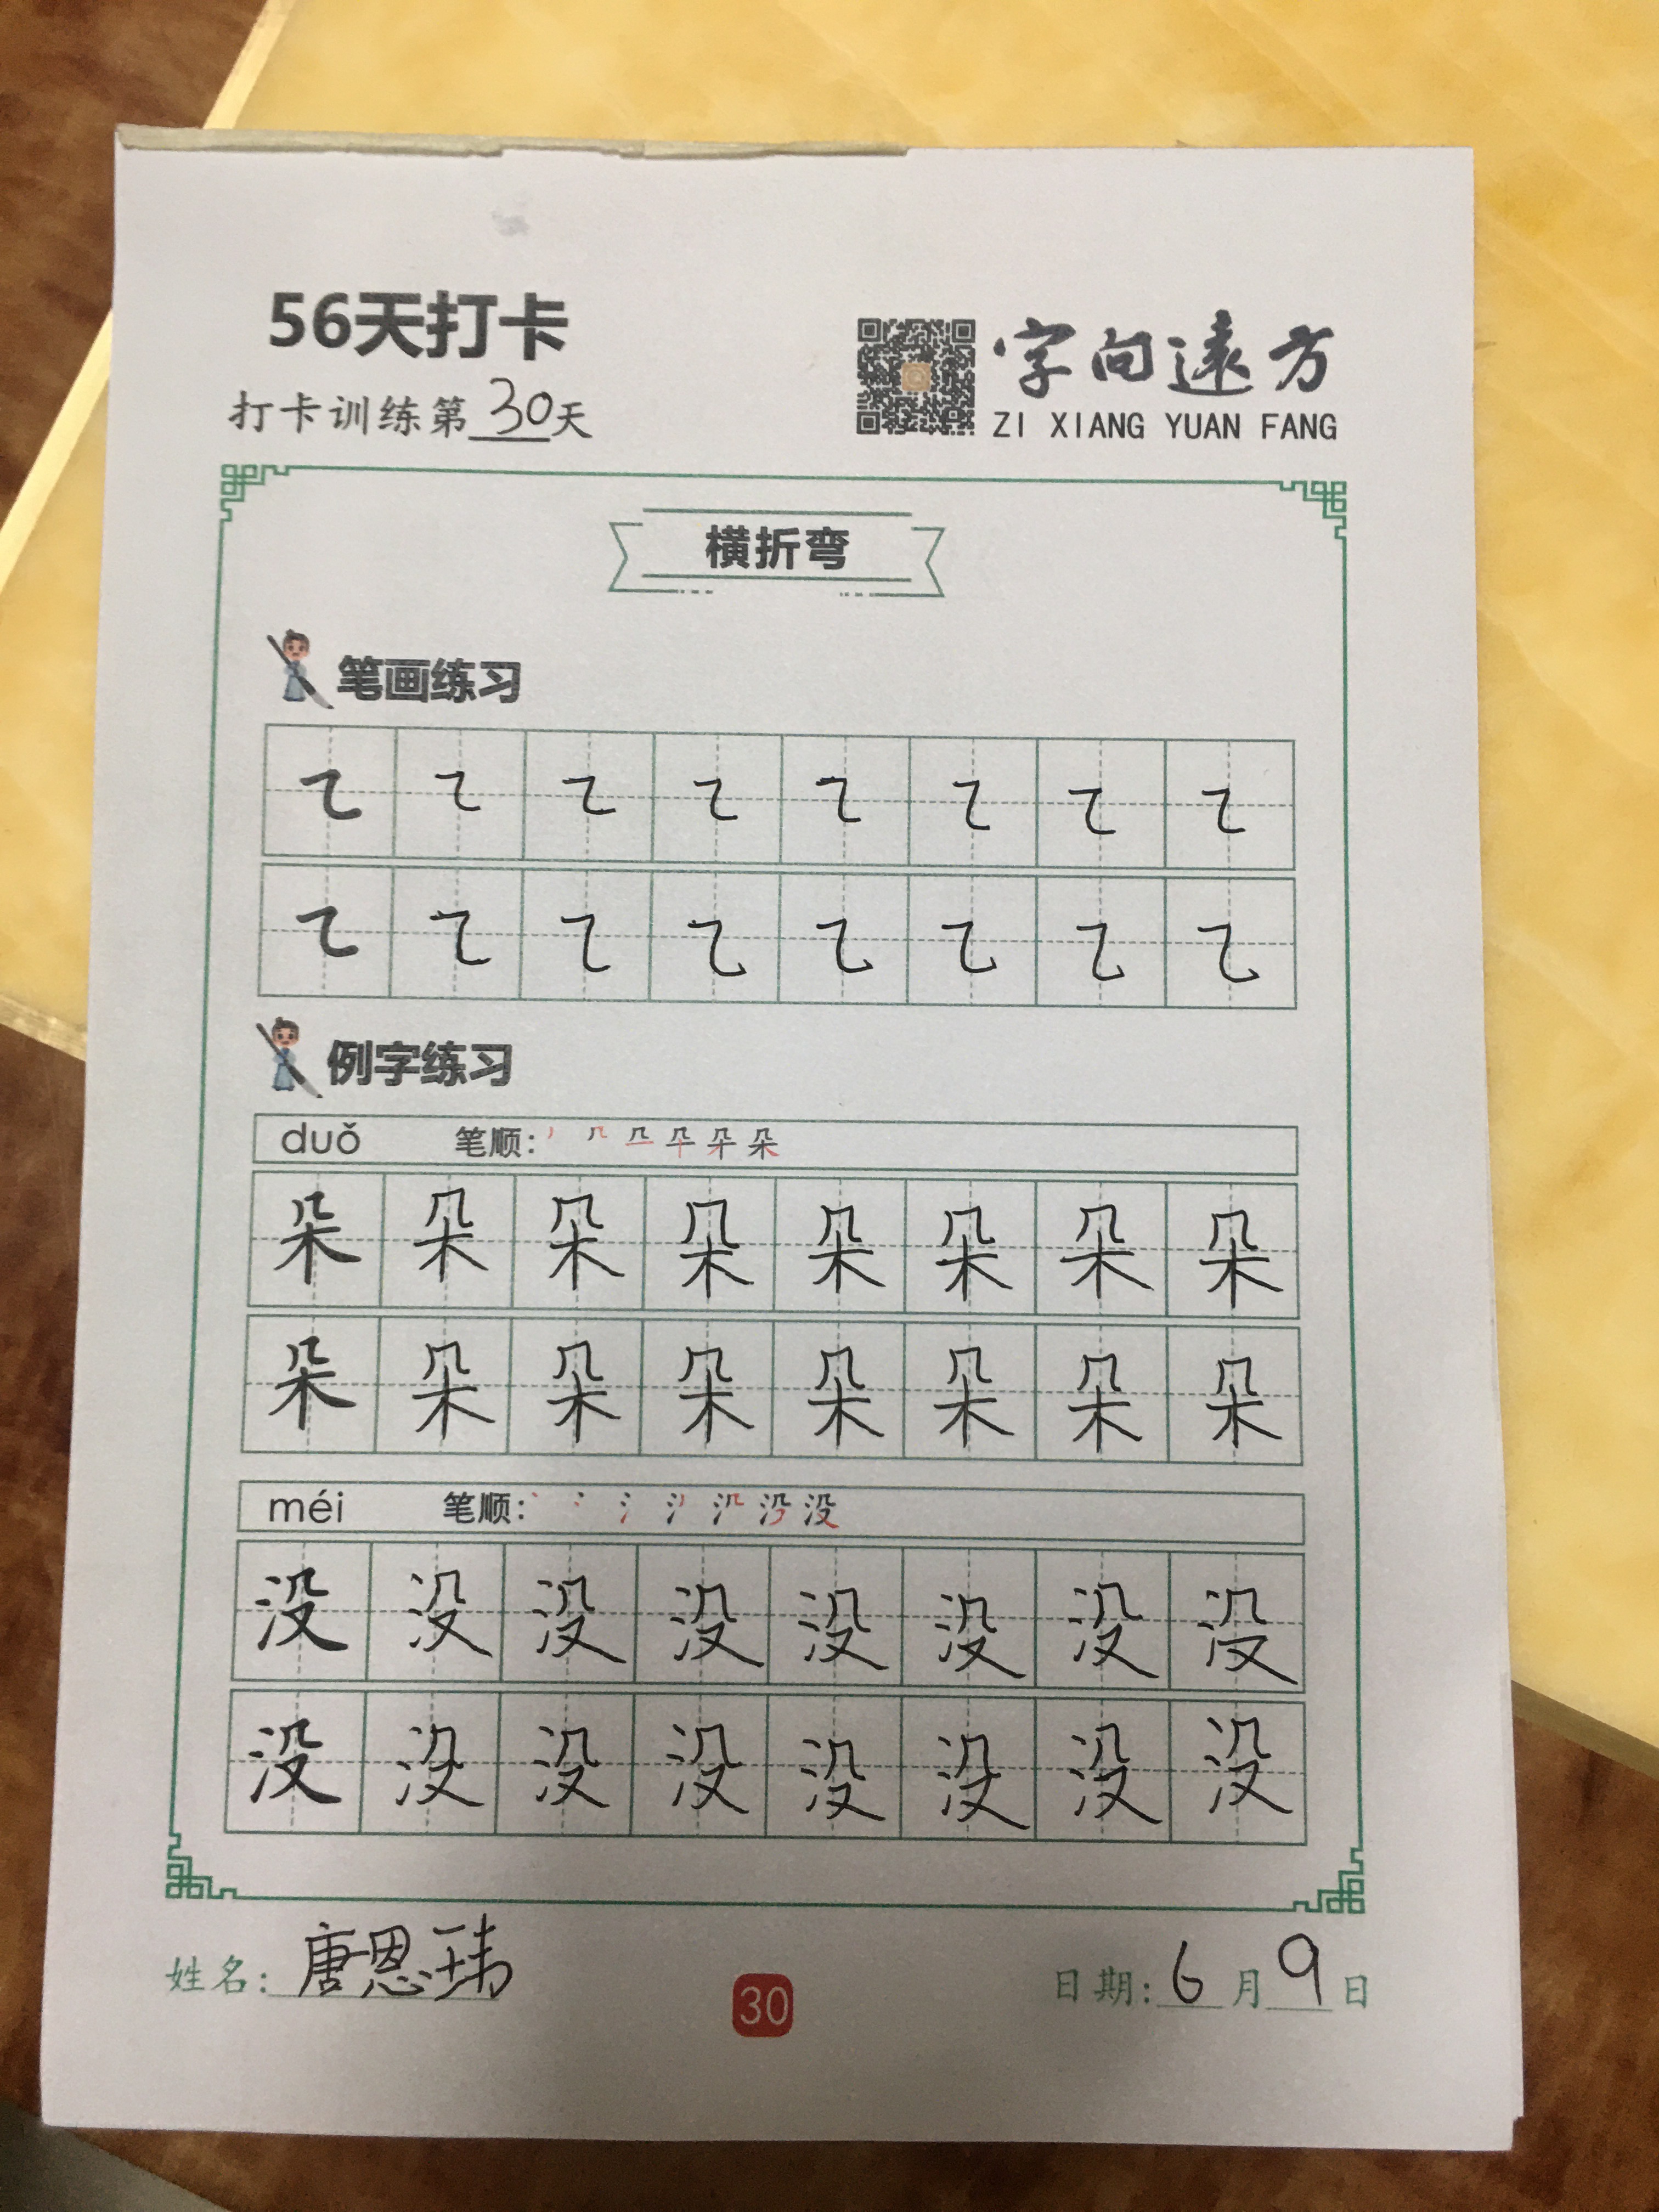 56天打卡
打卡训练第30天
字向遠方
ZI XIANG YUAN FANG
横折弯
笔画练习
例字练习
duǒ 笔顺：
朵 朵 朵 朵 朵 朵 朵 朵
朵 朵 朵 朵 朵 朵 朵 朵
méi 笔顺：
没 没 没 没 没 没 没 没
没 没 没 没 没 没 没 没
姓名：唐恩玮
30
日期：6月9日